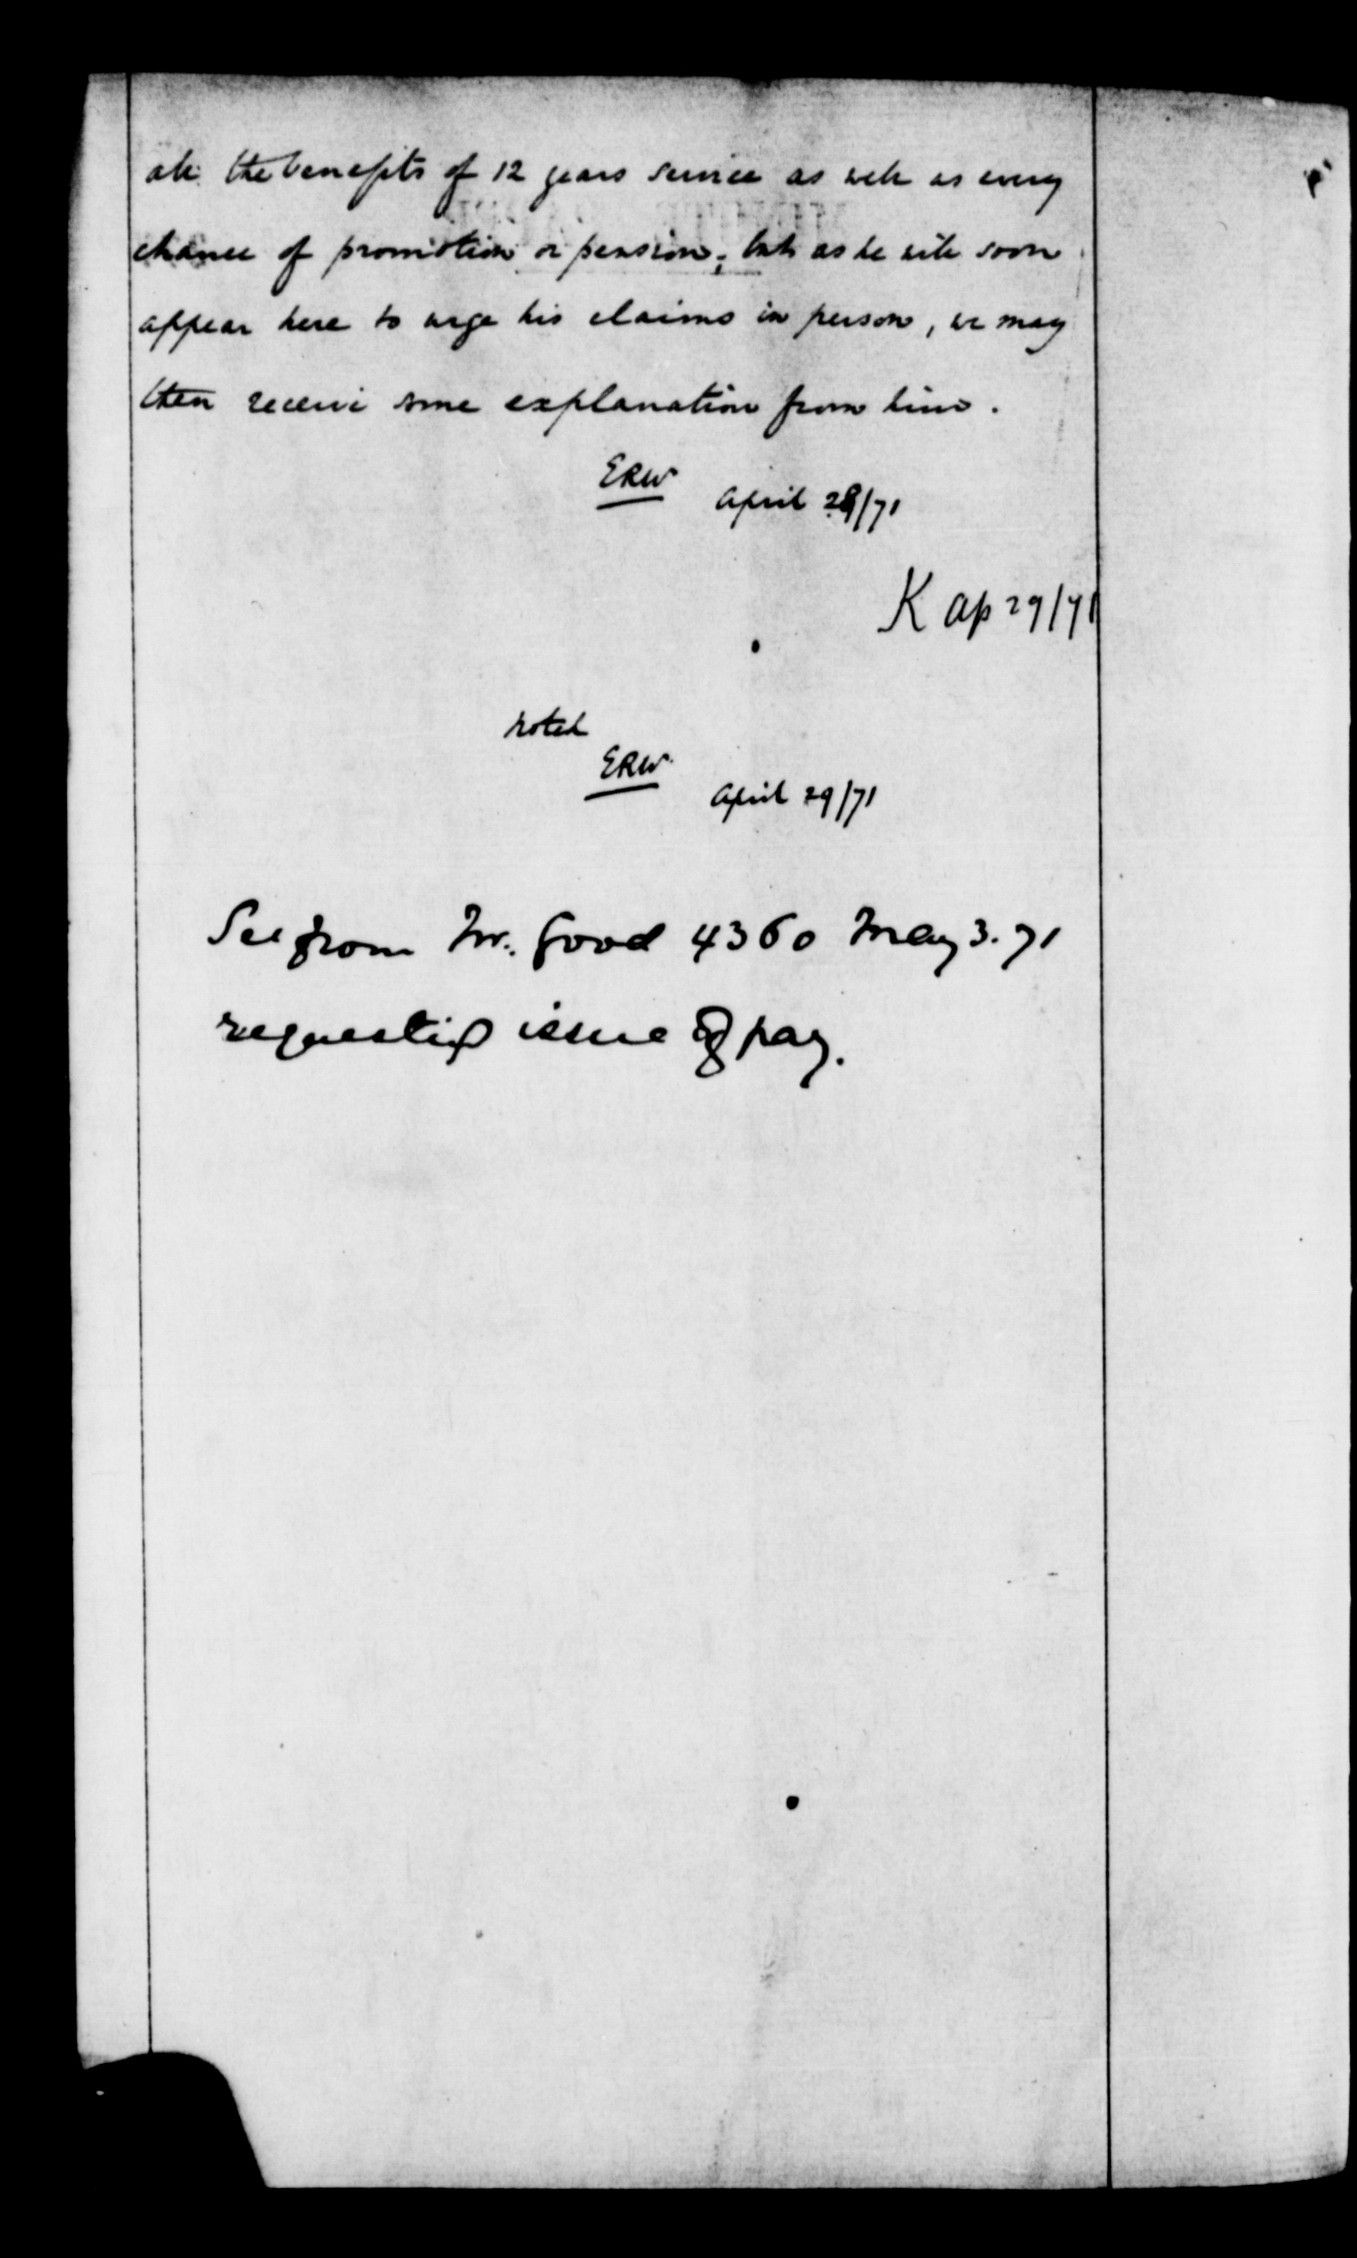 all the benefits of 12 years service as well as every
chance of promotion or pension; but as he will soon
appear here to urge his claims in person, we may
then receive some explanation from him.
ERW April 28/71
K ap 29/71
noted
ERW
April 29/71
See from Mr. Good 4360 May 3. 71
requesting issue of pay.